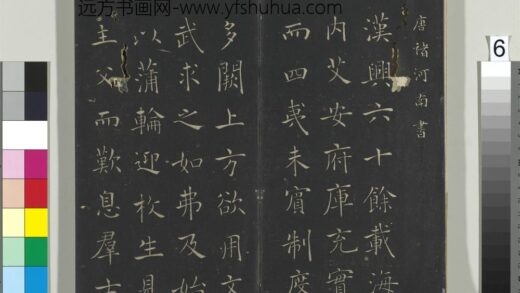 远方书画网- www.yfshuhua.com
唐褚河南書
漢興六十餘載海
内艾安府庫充實
而四夷未賓制度
多闕上方欲用文
武求之如弗及始
以蒲輪迎枚生見
主父而歎息羣士
6